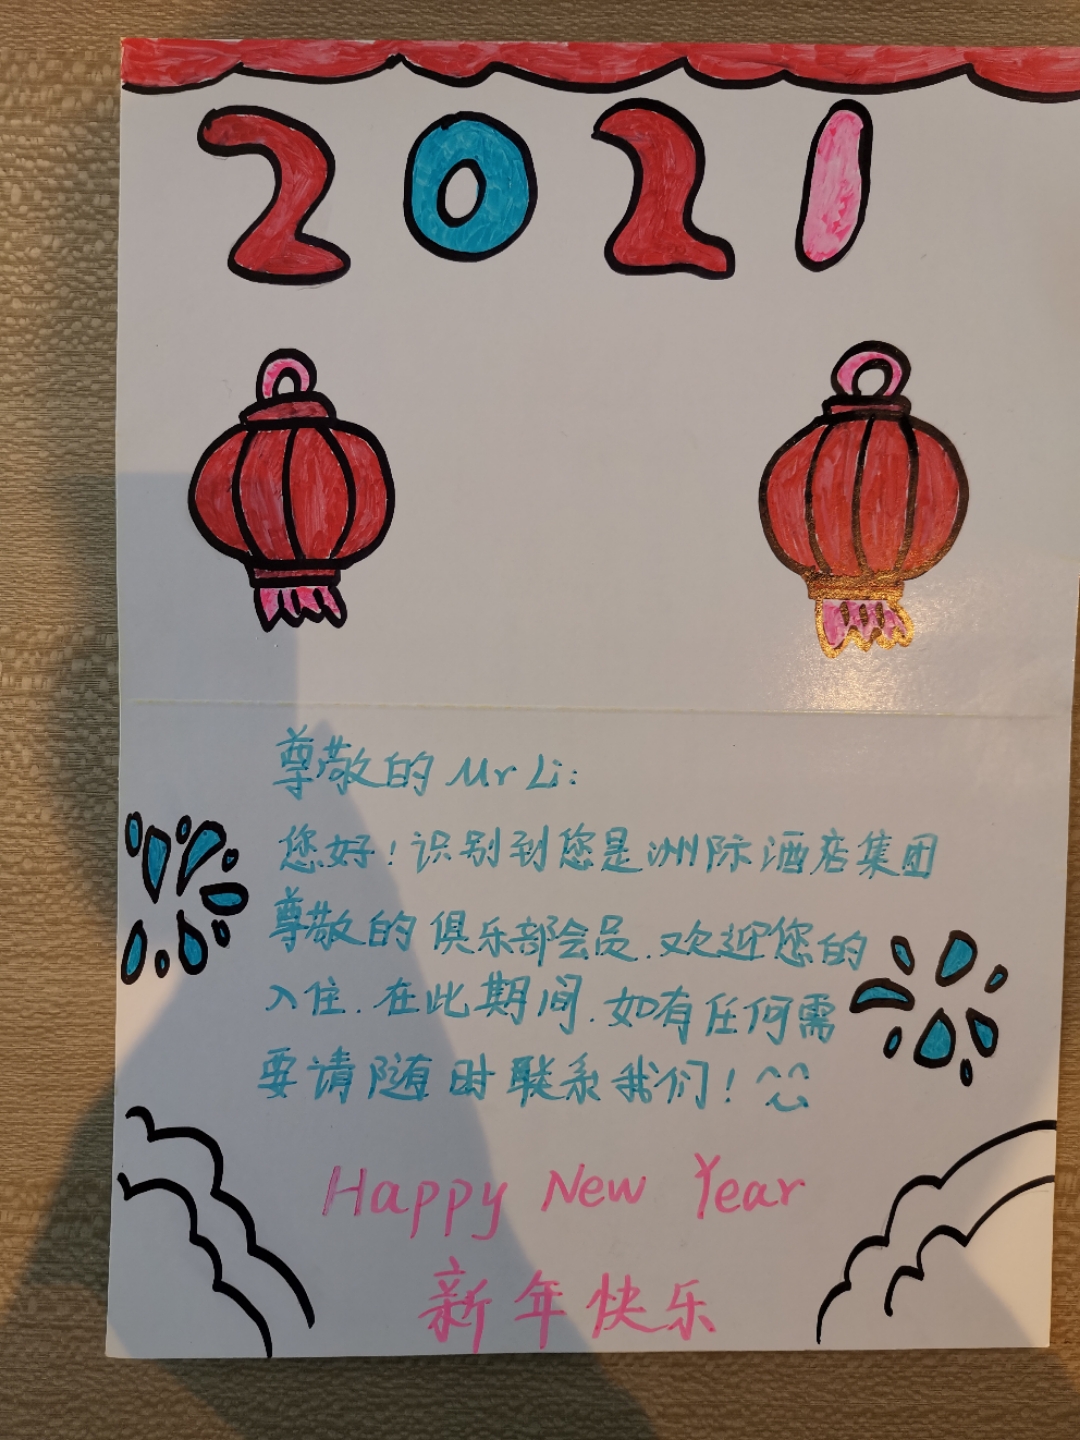 2021
尊敬的 Mr Li:
您好！识别到您是洲际酒店集团
尊敬的俱乐部会员.欢迎您的
入住.在此期间.如有任何需
要请随时联系我们！
Happy New Year
新年快乐